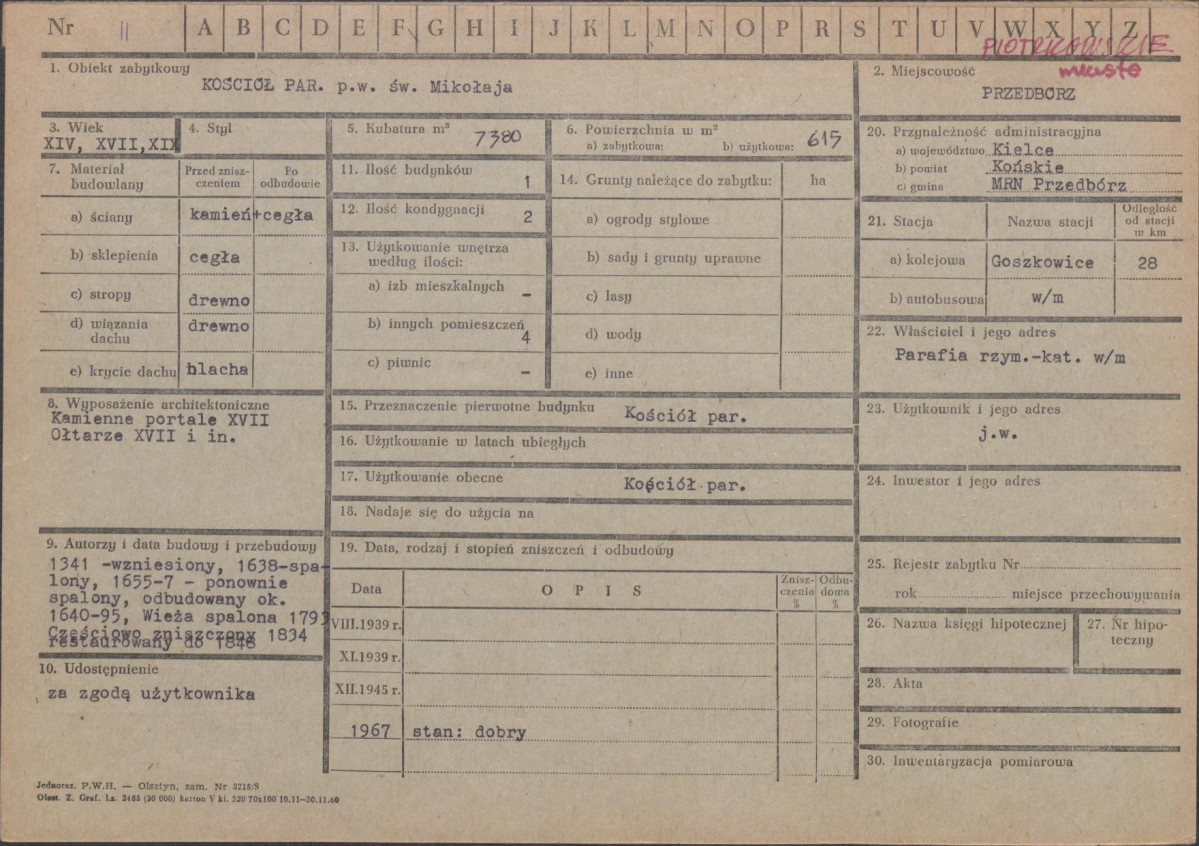 Nr 11 A B C D E F G H I J K L M N O P R S T U V W X Y Z
PIOTRKOWSKIE
miasto
1. Obiekt zabytkowy
KOŚCIÓŁ PAR. p.w. św. Mikołaja
2. Miejscowość
PRZEDBÓRZ
3. Wiek
XIV, XVII,XIX
4. Styl
5. Kubatura m³ 7380
6. Powierzchnia w m²
a) zabytkowa: b) użytkowa: 615
7. Materiał budowlany
Przed zniszczeniem
Po odbudowie
a) ściany kamień+cegła
b) sklepienia cegła
c) stropy drewno
d) wiązania dachu drewno
e) krycie dachu blacha
8. Wyposażenie architektoniczne
Kamienne portale XVII
Ołtarze XVII i in.
9. Autorzy i data budowy i przebudowy
1341 -wzniesiony, 1638-spa-
lony, 1655-7 - ponownie
spalony, odbudowany ok.
1640-95, Wieża spalona 1793
Częściowo zniszczony 1834
restaurowany do 1846
10. Udostępnienie
za zgodą użytkownika
11. Ilość budynków 1
12. Ilość kondygnacji 2
13. Użytkowanie wnętrza
według ilości:
a) izb mieszkalnych –
b) innych pomieszczeń 4
c) piwnic –
14. Grunty należące do zabytku: ha
a) ogrody stylowe
b) sady i grunty uprawne
c) lasy
d) wody
e) inne
15. Przeznaczenie pierwotne budynku Kościół par.
16. Użytkowanie w latach ubiegłych
17. Użytkowanie obecne Kościół par.
18. Nadaje się do użycia na
19. Data, rodzaj i stopień zniszczeń i odbudowy
Data O P I S Znisz-czenia % Odbu-dowa %
VIII.1939 r.
XI.1939 r.
XII.1945 r.
1967 stan: dobry
20. Przynależność administracyjna
a) województwo Kielce
b) powiat Końskie
c) gmina MRN Przedbórz
21. Stacja Nazwa stacji Odległość od stacji w km
a) kolejowa Goszkowice 28
b) autobusowa w/m
22. Właściciel i jego adres
Parafia rzym.-kat. w/m
23. Użytkownik i jego adres
j.w.
24. Inwestor i jego adres
25. Rejestr zabytku Nr
rok miejsce przechowywania
26. Nazwa księgi hipotecznej
27. Nr hipo-
teczny
28. Akta
29. Fotografie
30. Inwentaryzacja pomiarowa
Jednoraz. P.W.H. — Olsztyn, zam. Nr 3215/S
Olszt. Z. Graf. Lz. 2485 (30 000) karton V kl. 220 70x100 10.11—30.11.60